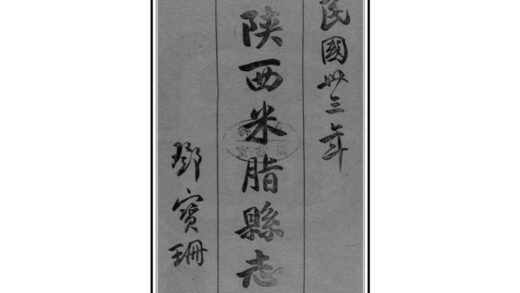 民國卅三年
陝西米脂縣志
鄧寳珊